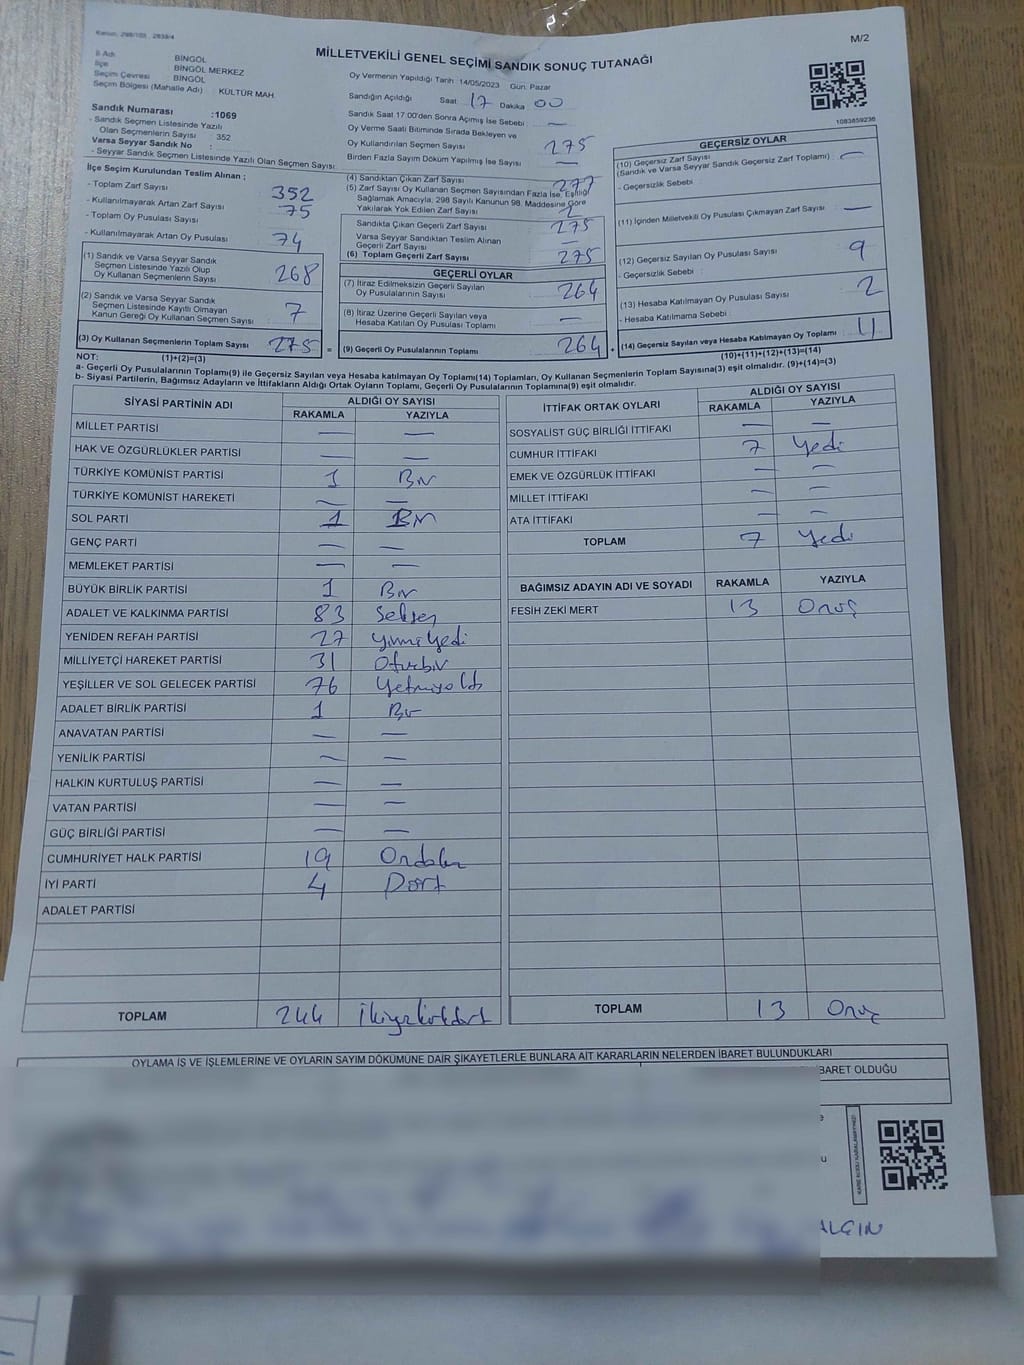 Kanun: 298/105 , 2839/4
M/2
MİLLETVEKİLİ GENEL SEÇİMİ SANDIK SONUÇ TUTANAĞI
İl Adı BİNGÖL
İlçe BİNGÖL MERKEZ
Seçim Çevresi : BİNGÖL
Seçim Bölgesi (Mahalle Adı) : KÜLTÜR MAH.
Sandık Numarası :1069
- Sandık Seçmen Listesinde Yazılı
Olan Seçmenlerin Sayısı : 352
Varsa Seyyar Sandık No :
- Seyyar Sandık Seçmen Listesinde Yazılı Olan Seçmen Sayısı:
Oy Vermenin Yapıldığı Tarih :14/05/2023 Gün: Pazar
Sandığın Açıldığı Saat 17 Dakika 00
Sandık Saat 17:00'den Sonra Açılmış İse Sebebi : —
Oy Verme Saati Bitiminde Sırada Bekleyen ve
Oy Kullandırılan Seçmen Sayısı 275
Birden Fazla Sayım Döküm Yapılmış İse Sayısı —
1083859236
İlçe Seçim Kurulundan Teslim Alınan ;
- Toplam Zarf Sayısı 352
- Kullanılmayarak Artan Zarf Sayısı 75
- Toplam Oy Pusulası Sayısı
- Kullanılmayarak Artan Oy Pusulası 74
(1) Sandık ve Varsa Seyyar Sandık
Seçmen Listesinde Yazılı Olup
Oy Kullanan Seçmenlerin Sayısı 268
(2) Sandık ve Varsa Seyyar Sandık
Seçmen Listesinde Kayıtlı Olmayan
Kanun Gereği Oy Kullanan Seçmen Sayısı 7
(3) Oy Kullanan Seçmenlerin Toplam Sayısı 275 =
(4) Sandıktan Çıkan Zarf Sayısı 277
(5) Zarf Sayısı Oy Kullanan Seçmen Sayısından Fazla İse, Eşitliği
Sağlamak Amacıyla; 298 Sayılı Kanunun 98. Maddesine Göre
Yakılarak Yok Edilen Zarf Sayısı 2
Sandıkta Çıkan Geçerli Zarf Sayısı 275
Varsa Seyyar Sandıktan Teslim Alınan
Geçerli Zarf Sayısı —
(6) Toplam Geçerli Zarf Sayısı 275
GEÇERLİ OYLAR
(7) İtiraz Edilmeksizin Geçerli Sayılan
Oy Pusulalarının Sayısı 264
(8) İtiraz Üzerine Geçerli Sayılan veya
Hesaba Katılan Oy Pusulası Toplamı —
(9) Geçerli Oy Pusulalarının Toplamı 264 +
GEÇERSİZ OYLAR
(10) Geçersiz Zarf Sayısı
(Sandık ve Varsa Seyyar Sandık Geçersiz Zarf Toplamı) : —
- Geçersizlik Sebebi :
(11) İçinden Milletvekili Oy Pusulası Çıkmayan Zarf Sayısı —
(12) Geçersiz Sayılan Oy Pusulası Sayısı 9
- Geçersizlik Sebebi :
(13) Hesaba Katılmayan Oy Pusulası Sayısı 2
- Hesaba Katılmama Sebebi :
(14) Geçersiz Sayılan veya Hesaba Katılmayan Oy Toplamı 11
(10)+(11)+(12)+(13)=(14)
NOT: (1)+(2)=(3)
a- Geçerli Oy Pusulalarının Toplamı(9) ile Geçersiz Sayılan veya Hesaba katılmayan Oy Toplamı(14) Toplamları, Oy Kullanan Seçmenlerin Toplam Sayısına(3) eşit olmalıdır. (9)+(14)=(3)
b- Siyasi Partilerin, Bağımsız Adayların ve İttifakların Aldığı Ortak Oyların Toplamı, Geçerli Oy Pusulalarının Toplamına(9) eşit olmalıdır.
SİYASİ PARTİNİN ADI ALDIĞI OY SAYISI
RAKAMLA YAZIYLA
MİLLET PARTİSİ — —
HAK VE ÖZGÜRLÜKLER PARTİSİ — —
TÜRKİYE KOMÜNİST PARTİSİ 1 Bir
TÜRKİYE KOMÜNİST HAREKETİ — —
SOL PARTİ 1 Bir
GENÇ PARTİ — —
MEMLEKET PARTİSİ — —
BÜYÜK BİRLİK PARTİSİ 1 Bir
ADALET VE KALKINMA PARTİSİ 83
YENİDEN REFAH PARTİSİ 27 Yirmiyedi
MİLLİYETÇİ HAREKET PARTİSİ 31 Otuzbir
YEŞİLLER VE SOL GELECEK PARTİSİ 76 Yetmişaltı
ADALET BİRLİK PARTİSİ 1 Bir
ANAVATAN PARTİSİ — —
YENİLİK PARTİSİ — —
HALKIN KURTULUŞ PARTİSİ — —
VATAN PARTİSİ — —
GÜÇ BİRLİĞİ PARTİSİ — —
CUMHURİYET HALK PARTİSİ 19 Ondokuz
İYİ PARTİ 4 Dört
ADALET PARTİSİ
TOPLAM 244 İkiyüzkırkdört
İTTİFAK ORTAK OYLARI ALDIĞI OY SAYISI
RAKAMLA YAZIYLA
SOSYALİST GÜÇ BİRLİĞİ İTTİFAKI — —
CUMHUR İTTİFAKI 7 Yedi
EMEK VE ÖZGÜRLÜK İTTİFAKI — —
MİLLET İTTİFAKI — —
ATA İTTİFAKI — —
TOPLAM 7 Yedi
BAĞIMSIZ ADAYIN ADI VE SOYADI RAKAMLA YAZIYLA
FESİH ZEKİ MERT 13 Onüç
TOPLAM 13 Onüç
OYLAMA İŞ VE İŞLEMLERİNE VE OYLARIN SAYIM DÖKÜMÜNE DAİR ŞİKAYETLERLE BUNLARA AİT KARARLARIN NELERDEN İBARET BULUNDUKLARI
BARET OLDUĞU